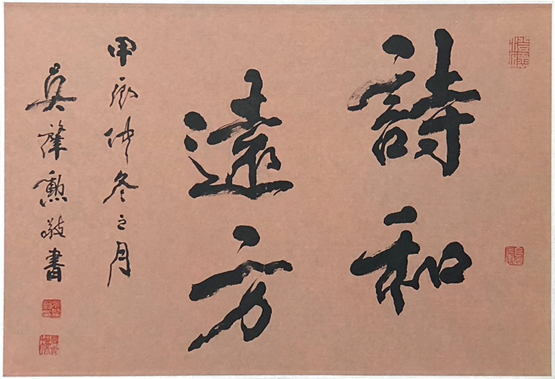 詩和
遠方
甲辰仲冬之月
吳肇勳敬書